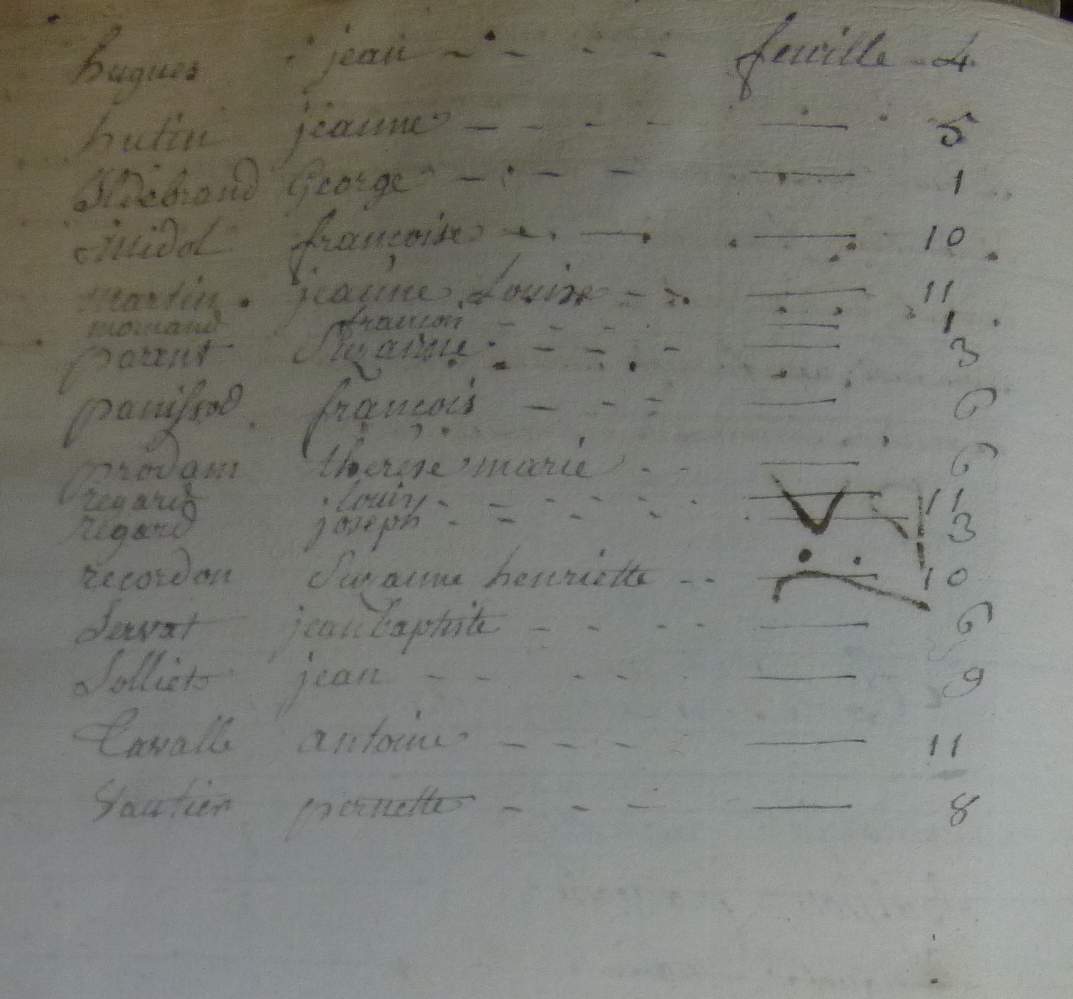 hugues jean - - - - - feuille - 4
hutin jeanne - - - - - — 5
Ildebrand George - - - - — 1
midol françoise - - — — 10
martin jeanne Louise - - — 11
françois - - - - — 1
parent Suzanne - - - - — 3
panissod françois - - - — 6
prodam therese marie - - — 6
regard Louis - - - - - - — 11
regard joseph - - - - - — 3
recordon Suzanne henriette - - — 10
Servat jean baptiste - - - - — 6
Solliet jean - - - - — 9
Cavalle antoine - - - - — 11
Vautier pernette - - - - — 8